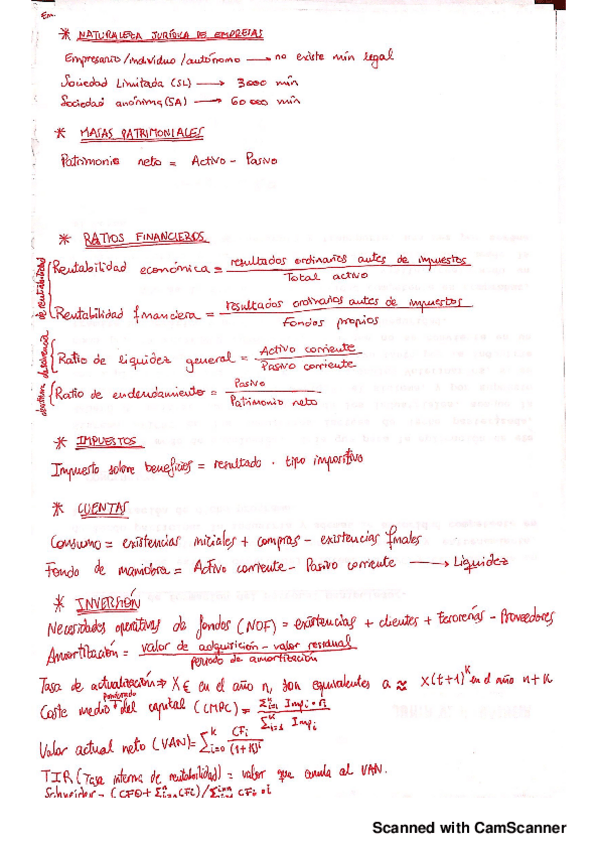 Em.
* NATURALEZA JURÍDICA DE EMPRESAS
Empresario/individuo/autónomo → no existe mín legal
Sociedad Limitada (SL) → 3000 mín
Sociedad anónima (SA) → 60000 mín
* MASAS PATRIMONIALES
Patrimonio neto = Activo - Pasivo
* RATIOS FINANCIEROS
de rentabilidad
Rentabilidad económica = resultados ordinarios antes de impuestos / Total activo
Rentabilidad financiera = resultados ordinarios antes de impuestos / Fondos propios
Ratio de liquidez general = Activo corriente / Pasivo corriente
Ratio de endeudamiento = Pasivo / Patrimonio neto
* IMPUESTOS
Impuesto sobre beneficios = resultado · tipo impositivo
* CUENTAS
Consumo = existencias iniciales + compras - existencias finales
Fondo de maniobra = Activo corriente - Pasivo corriente → Liquidez
* INVERSIÓN
Necesidades operativas de fondos (NOF) = existencias + clientes + tesorería - Proveedores
Amortización = valor de adquisición - valor residual / periodo de amortización
Tasa de actualización → X€ en el año n, son equivalentes a ≈ x(t+1)^k en el año n+k
Coste medio ponderado del capital (CMPC) = Σ^k_i=1 Imp_i · r_i / Σ^k_i=1 Imp_i
Valor actual neto (VAN) = Σ^k_i=0 CF_i / (1+k)^i
TIR (Tasa interna de rentabilidad) = valor que anula al VAN.
Schneider
Scanned with CamScanner